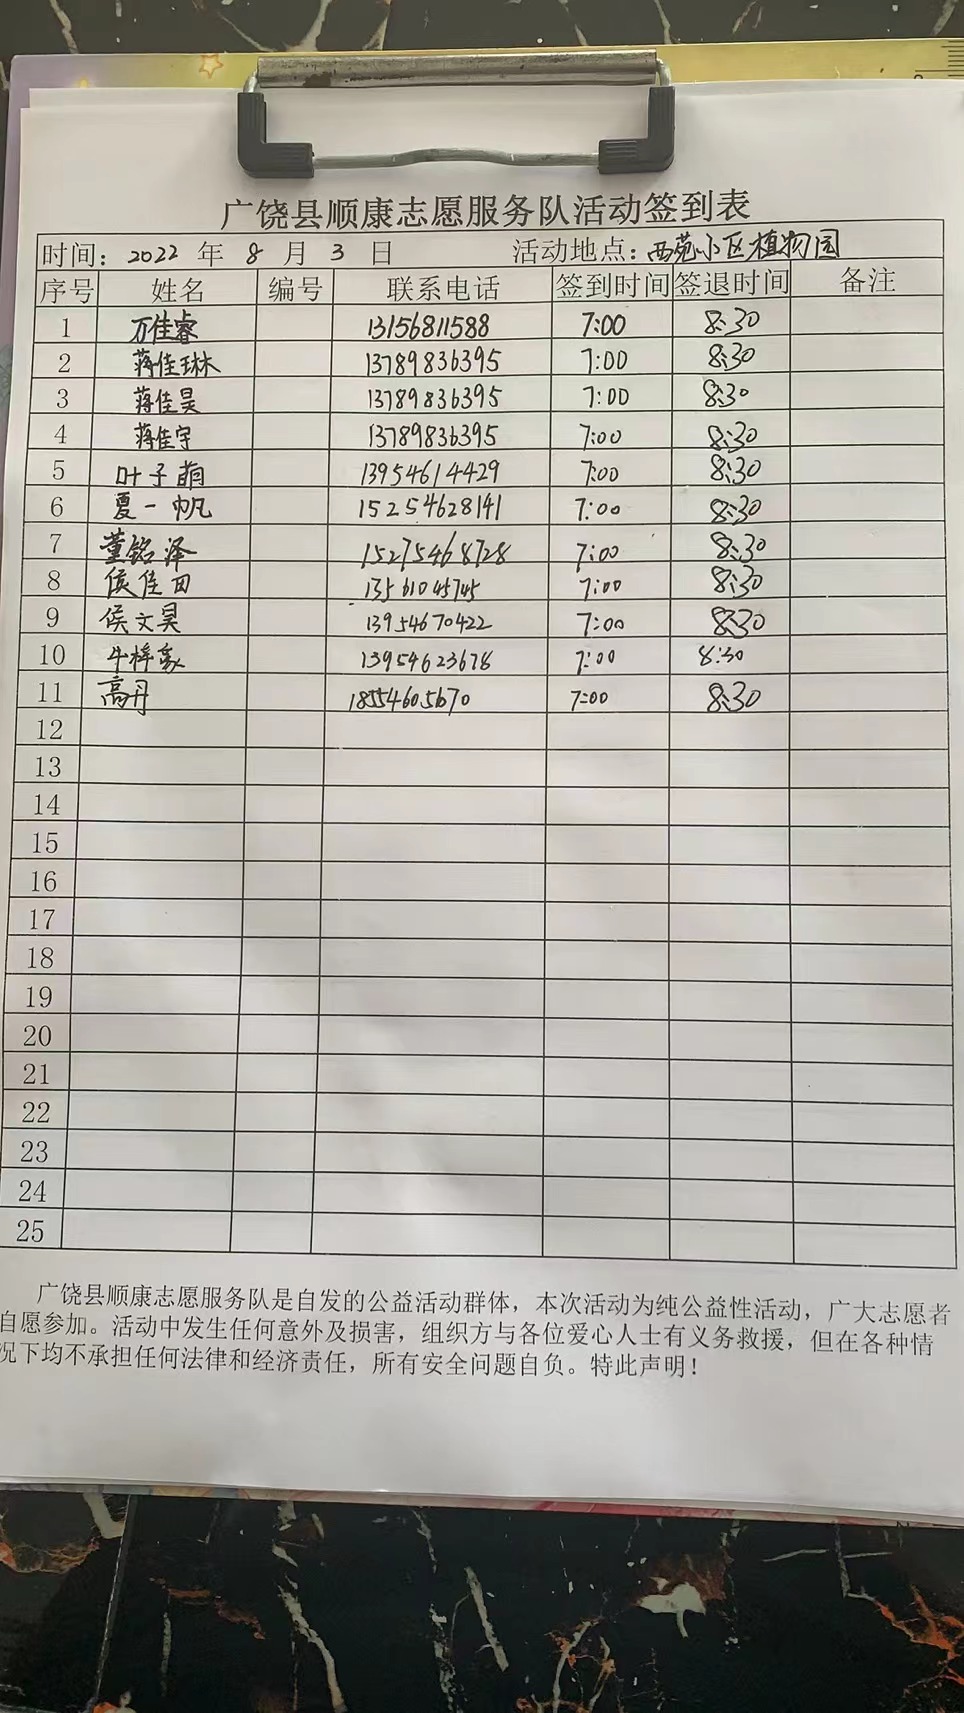 广饶县顺康志愿服务队活动签到表
时间：2022 年 8 月 3 日 活动地点：西苑小区植物园
序号 姓名 编号 联系电话 签到时间 签退时间 备注
1 万佳睿 13156811588 7:00 8:30
2 蒋佳琳 13789836395 7:00 8:30
3 蒋佳昊 13789836395 7:00 8:30
4 蒋佳宇 13789836395 7:00 8:30
5 叶子萌 13954614429 7:00 8:30
6 夏一帆 15254628141 7:00 8:30
7 董铭泽 15275468728 7:00 8:30
8 侯佳田 13561045745 7:00 8:30
9 侯文昊 13954670422 7:00 8:30
10 牛梓豪 13954623678 7:00 8:30
11 高丹 18554605670 7:00 8:30
12
13
14
15
16
17
18
19
20
21
22
23
24
25
广饶县顺康志愿服务队是自发的公益活动群体，本次活动为纯公益性活动，广大志愿者
自愿参加。活动中发生任何意外及损害，组织方与各位爱心人士有义务救援，但在各种情
况下均不承担任何法律和经济责任，所有安全问题自负。特此声明！